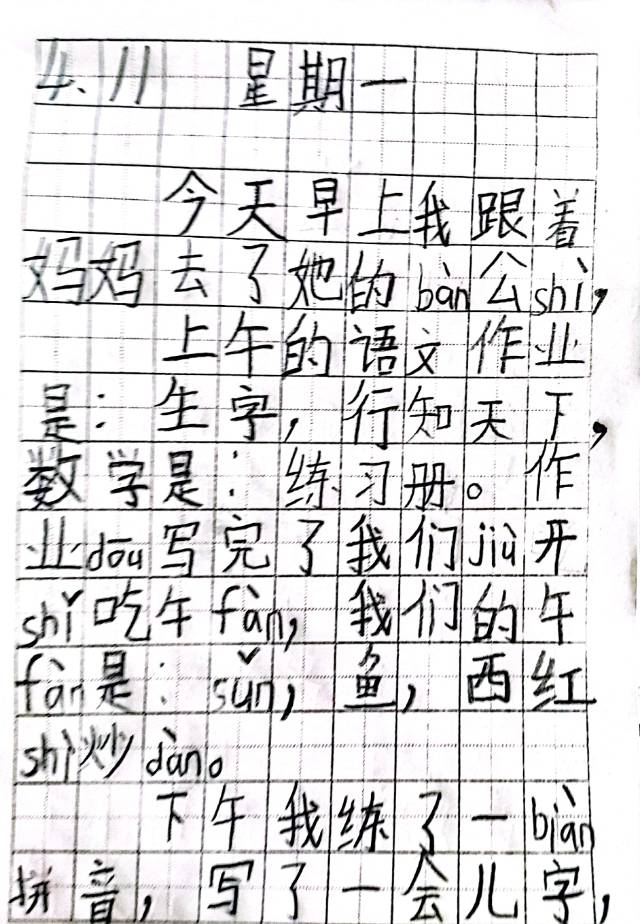 4.11 星期一
今天早上我跟着
妈妈去了她的bàn公shì,
上午的语文作业
是:生字,行知天下,
数学是:练习册。作
业dōu写完了我们jiù开
shǐ吃午fàn,我们的午
fàn是:sǔn,鱼,西红
shì炒dàn。
下午我练了一biàn
拼音,写了一会儿字,